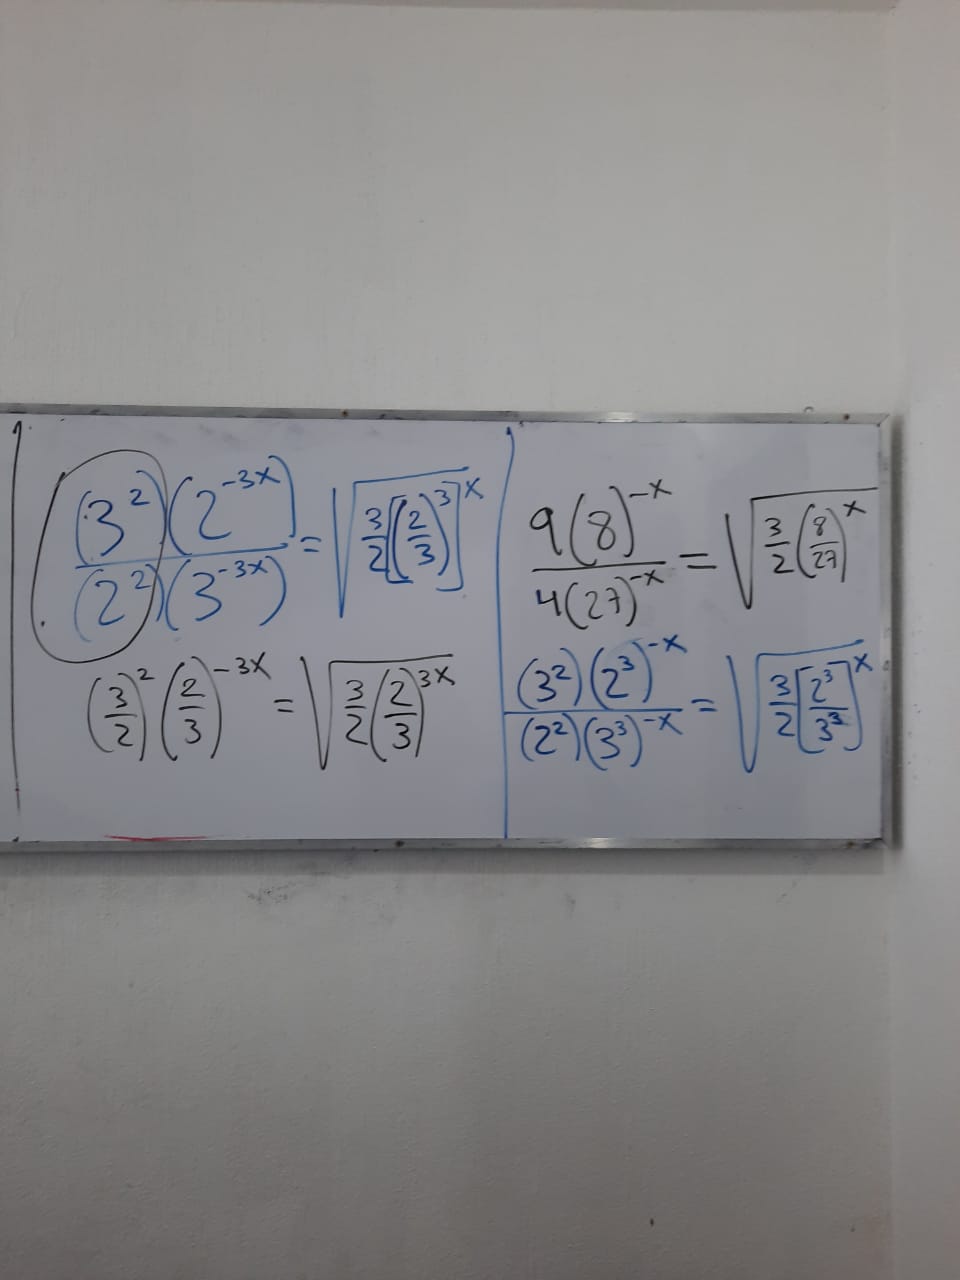 (3²)(2⁻³ˣ) / (2²)(3⁻³ˣ) = √(3/2 [(2/3)³]ˣ)
(3/2)² (2/3)⁻³ˣ = √(3/2 (2/3)³ˣ)
9(8)⁻ˣ / 4(27)⁻ˣ = √(3/2 (8/27)ˣ)
(3²)(2³)⁻ˣ / (2²)(3³)⁻ˣ = √(3/2 [2³/3³]ˣ)